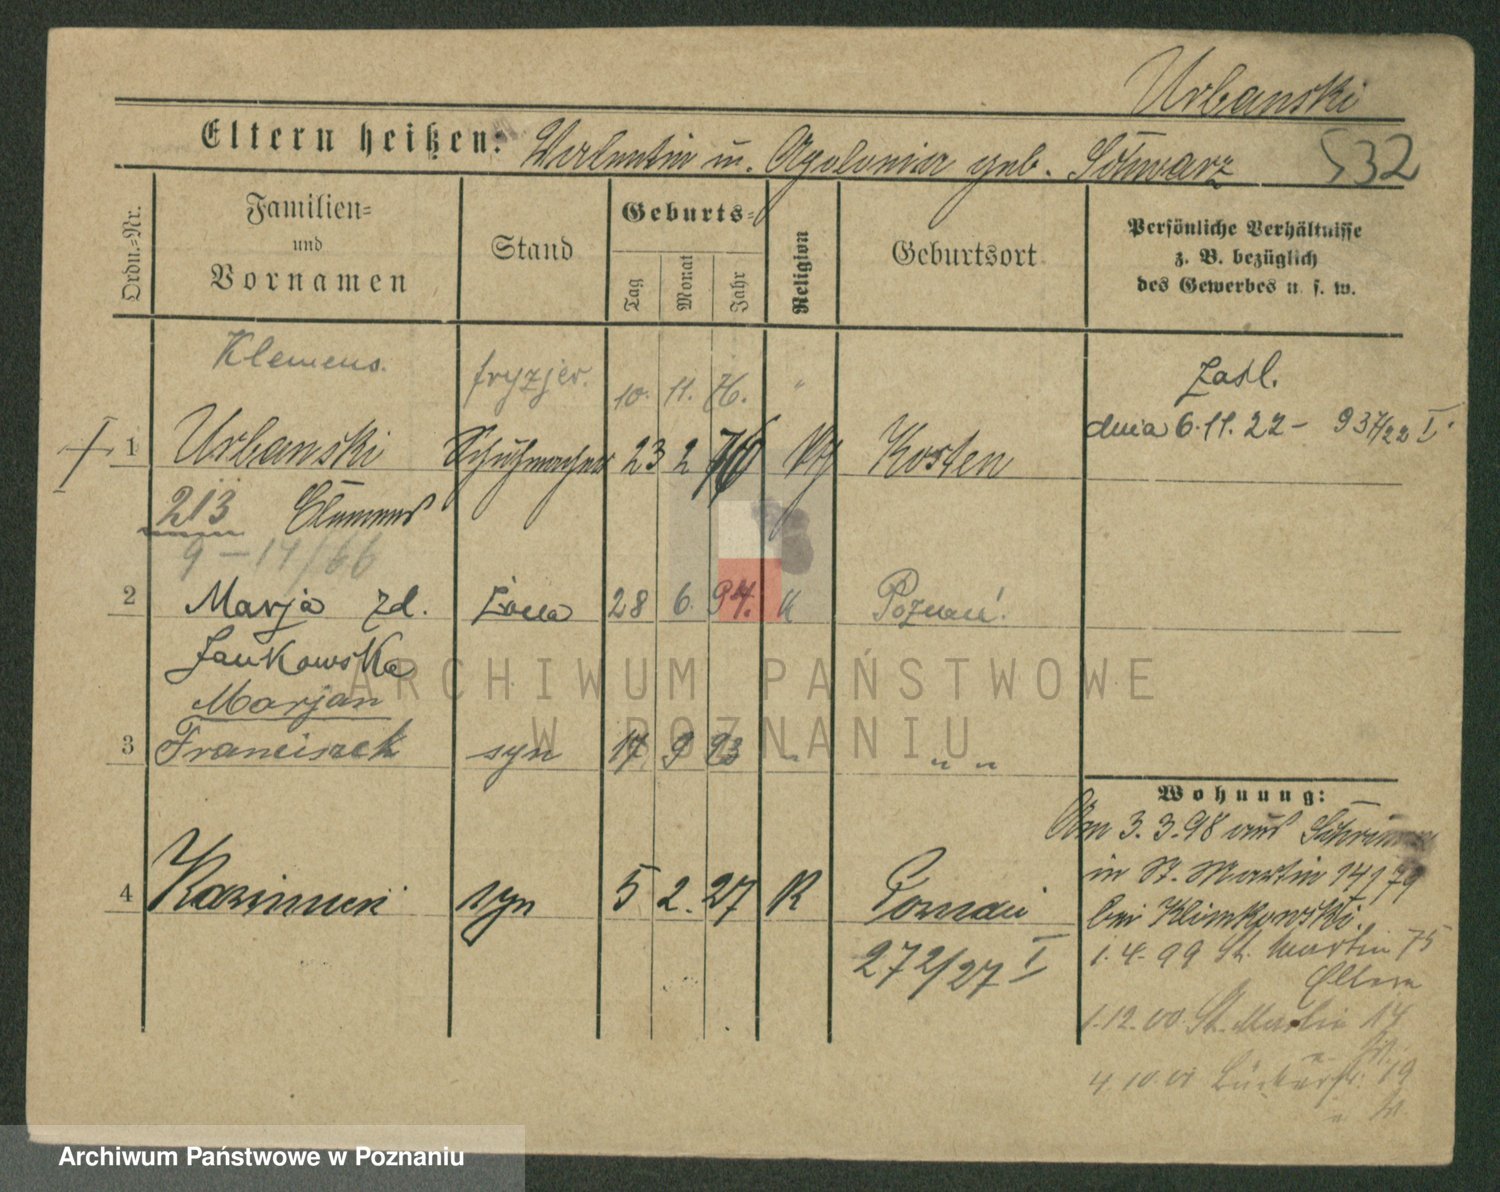 Urbanski
Eltern heißen: Valentin u. Apolonia geb. Schwarz 532
Ordn.-Nr.
Familien-
und
Vornamen
Stand
Geburts-
Tag
Monat
Jahr
Religion
Geburtsort
Persönliche Verhältnisse
z. B. bezüglich
des Gewerbes u. s. w.
Klemens. fryzjer. 10. 11. 76. "
Zasl.
dnia 6.11.22 - 937/22 I.
1 Urbanski Schuhmacher 23 2 76 Kosten
213 Clemens
9-14/66
2 Marja zd. żona 28 6. K Poznań.
Jankowska
Marjan
3 Franciszek syn 17 9 23 " " "
4 Kazimierz syn 5 2. 27 R Poznań
272/27 I
Wohnung:
Am 3.3.98 aus Schrimm
in St. Martin 14/79
bei Klimkowski.
1.4.99 St. Martin 75
Eltern
1.12.00 St. Martin 14
4.10.01 19
Archiwum Państwowe
w Poznaniu
Archiwum Państwowe w Poznaniu